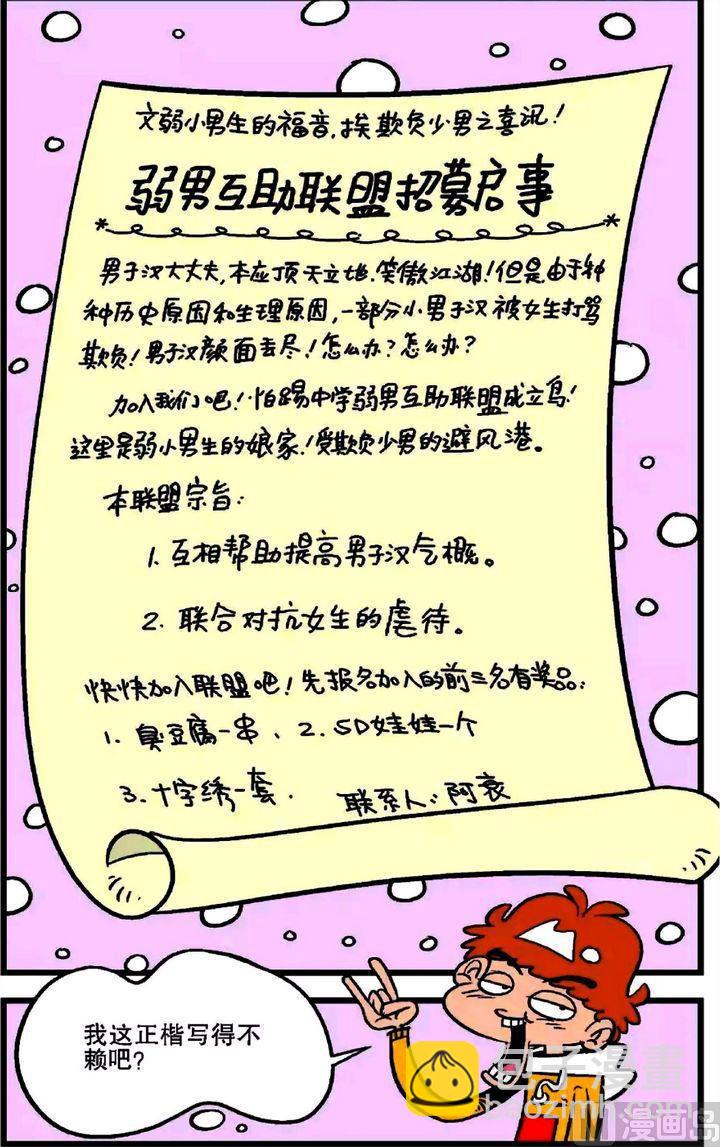 文弱小男生的福音,挨欺负少男之喜讯!
弱男互助联盟招募启事
男子汉大丈夫,本应顶天立地.笑傲江湖!但是,由于种
种历史原因和生理原因,一部分小男子汉被女生打骂
欺负!男子汉颜面丢尽!怎么办?怎么办?
加入我们吧!怕踢中学弱男互助联盟成立鸟!
这里是弱小男生的娘家!受欺负少男的避风港。
本联盟宗旨:
1. 互相帮助提高男子汉气概。
2. 联合对抗女生的虐待。
快快加入联盟吧!先报名加入的前三名有奖品:
1. 臭豆腐一串、2. SD娃娃一个
3. 十字绣一套. 联系人:阿衰
我这正楷写得不
赖吧?
包子漫畫
baozimh.com
漫画岛